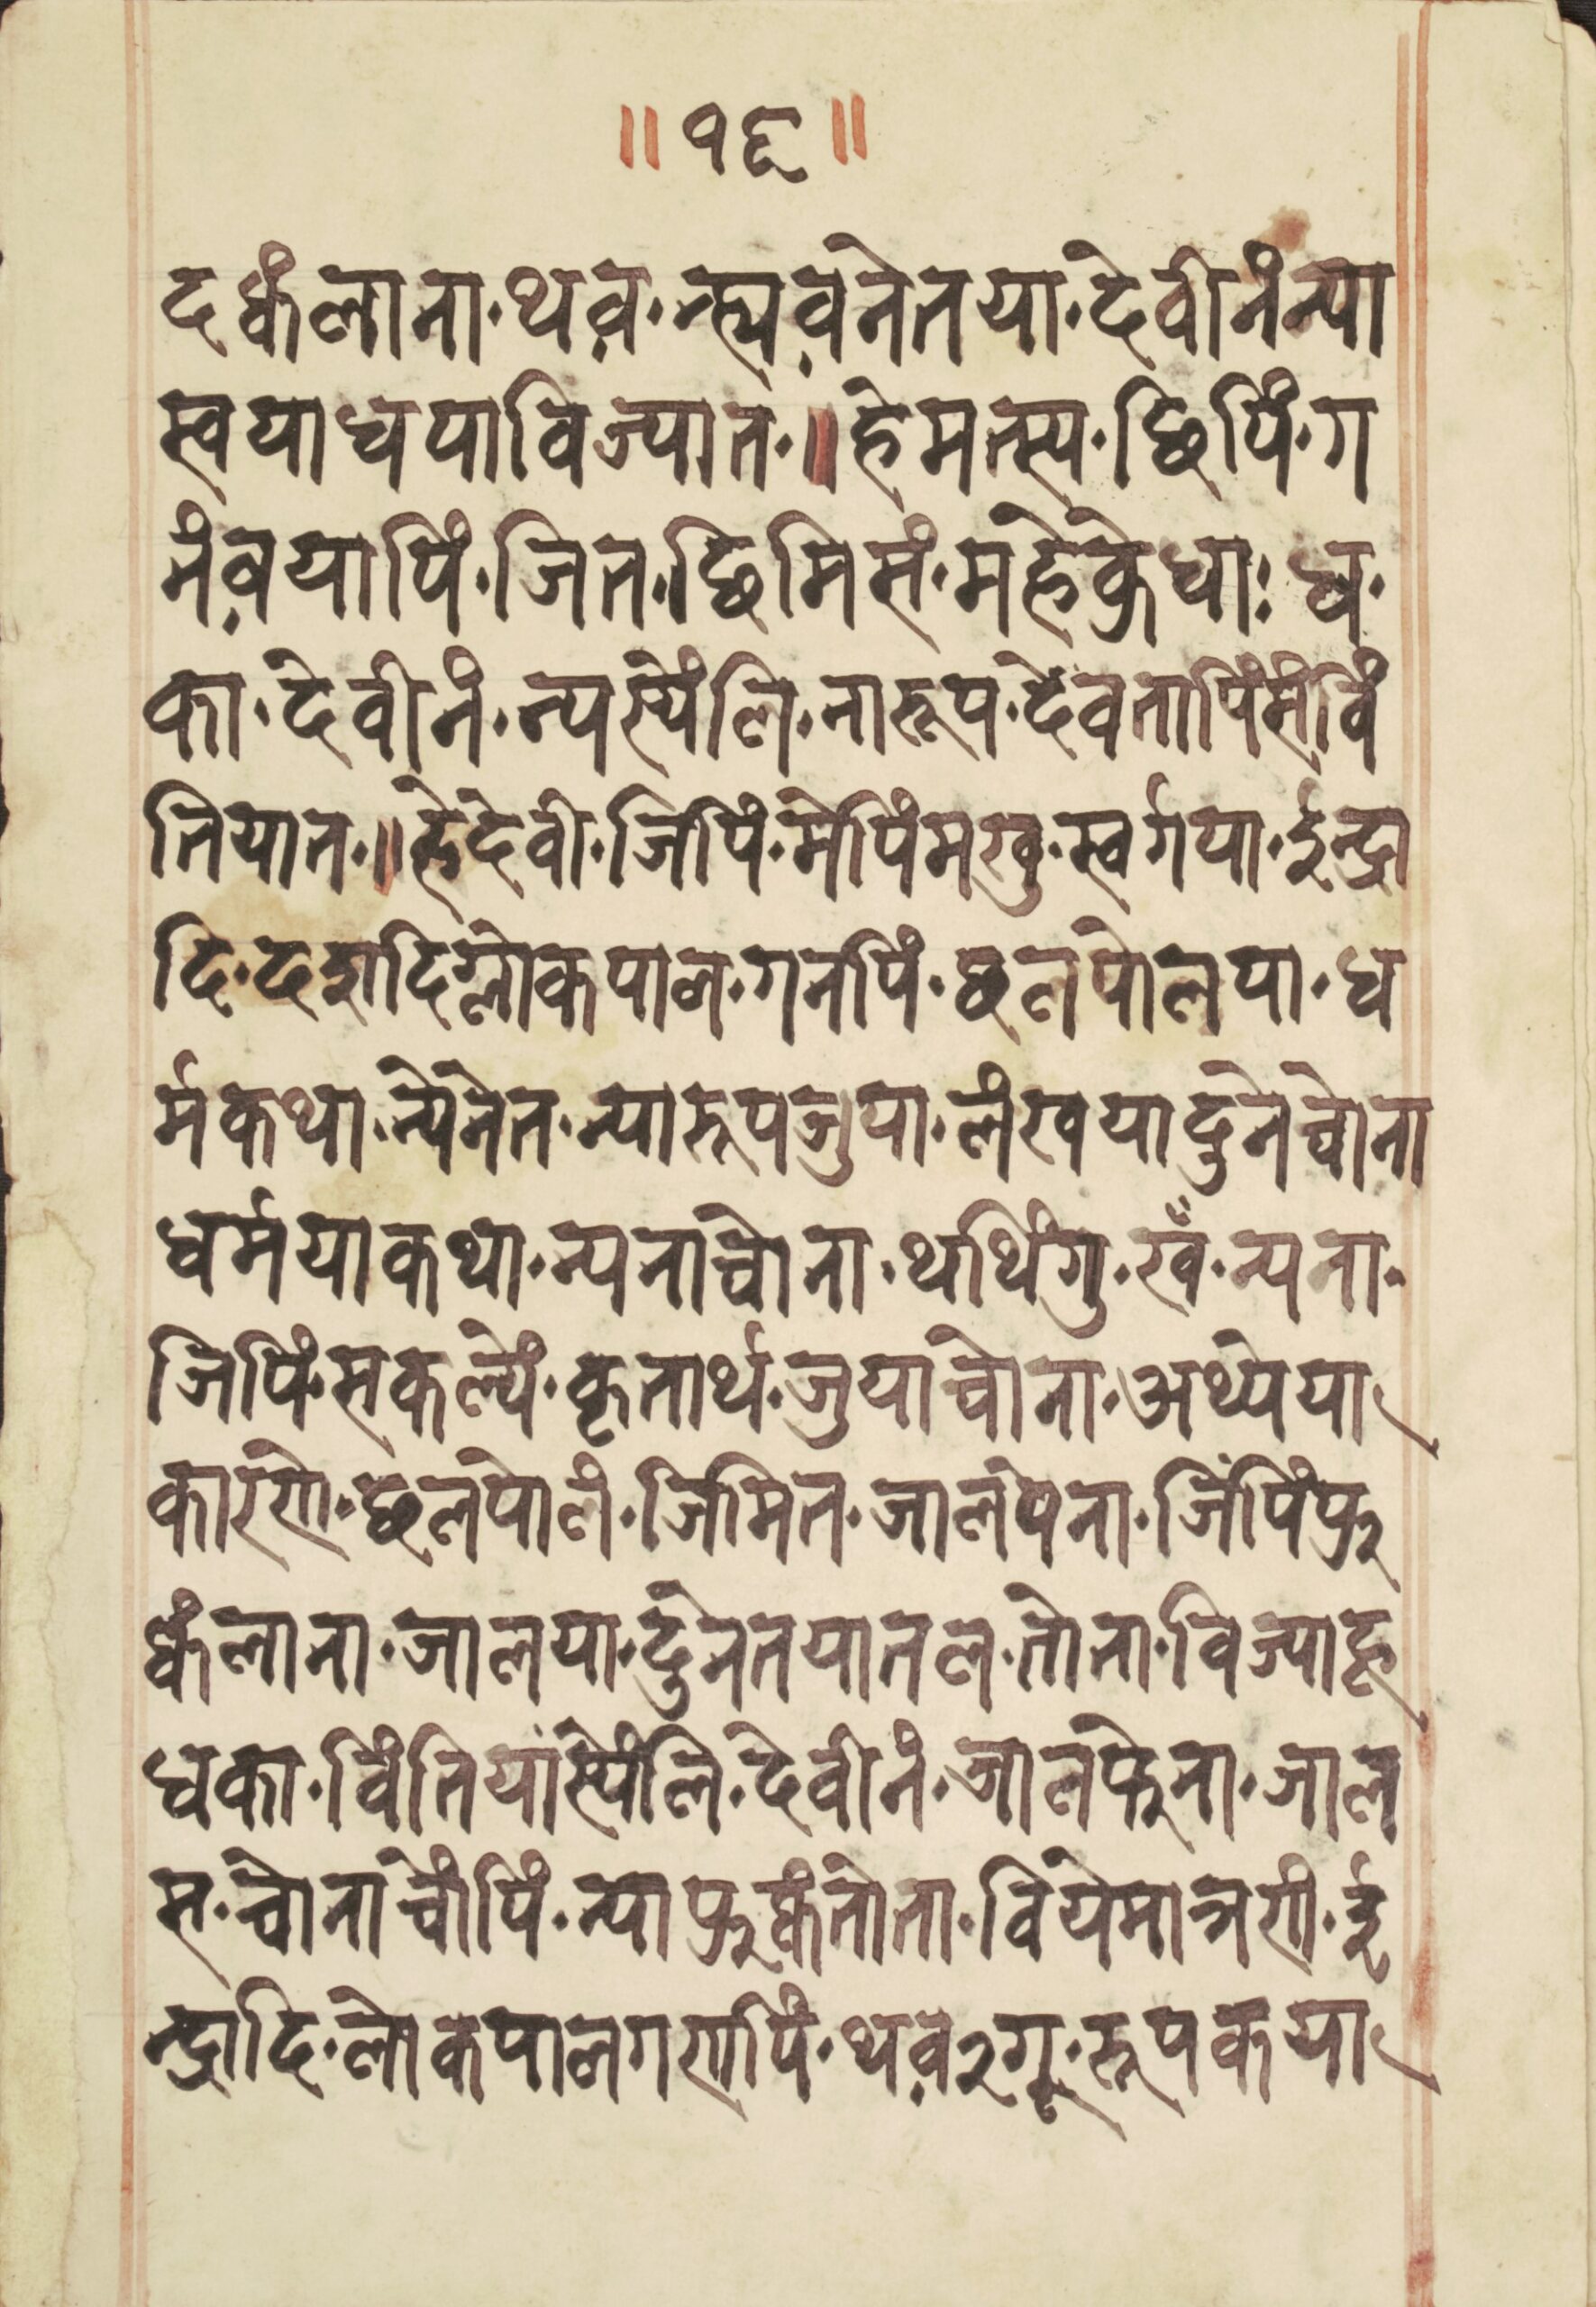 ॥ १६ ॥
दक्वंलाना·थव़·न्ह्यव़नेतया·देवीनंन्या
स्वयाधयाविज्यात·॥हेमत्स्य·छिपिं·ग
नंव़यापिं·जित·छिमिसं·महेक्रेधाः धः
का·देवीनं·न्यस्येंलि·नारूप·देवतापिंसंविं
तियात·॥हेदेवी·जिपिं·मेपिंमखु·स्वर्गया·ईन्द्रा
दि·दशदिग्लोकपाल·गनपिं·छलपोलया·ध
र्मकथा·न्येनेत·न्यारूपजुया·लंखयादुनेच्वोना
धर्मयाकथा·न्यनाच्वोना·थथिंगु·खँ·न्यना·
जिपिं·सकल्यें·कृतार्थ·जुयाच्वोना·अथ्येया
कारणे·छलपोलं·जिमित·जालंपेना·जिंपिंफु
क्वंलाना·जालया·दुनेतयातल·तोता·विज्याहू
धका·विंतियांस्येंलि·देवीनं·जालफेना·जाल
स·च्वोनाच्वोंपिं·न्याफुकंतोता·वियेमात्रणी·ई
न्द्रादि·लोकपालगणपिं·थव़२गू·रूपकया